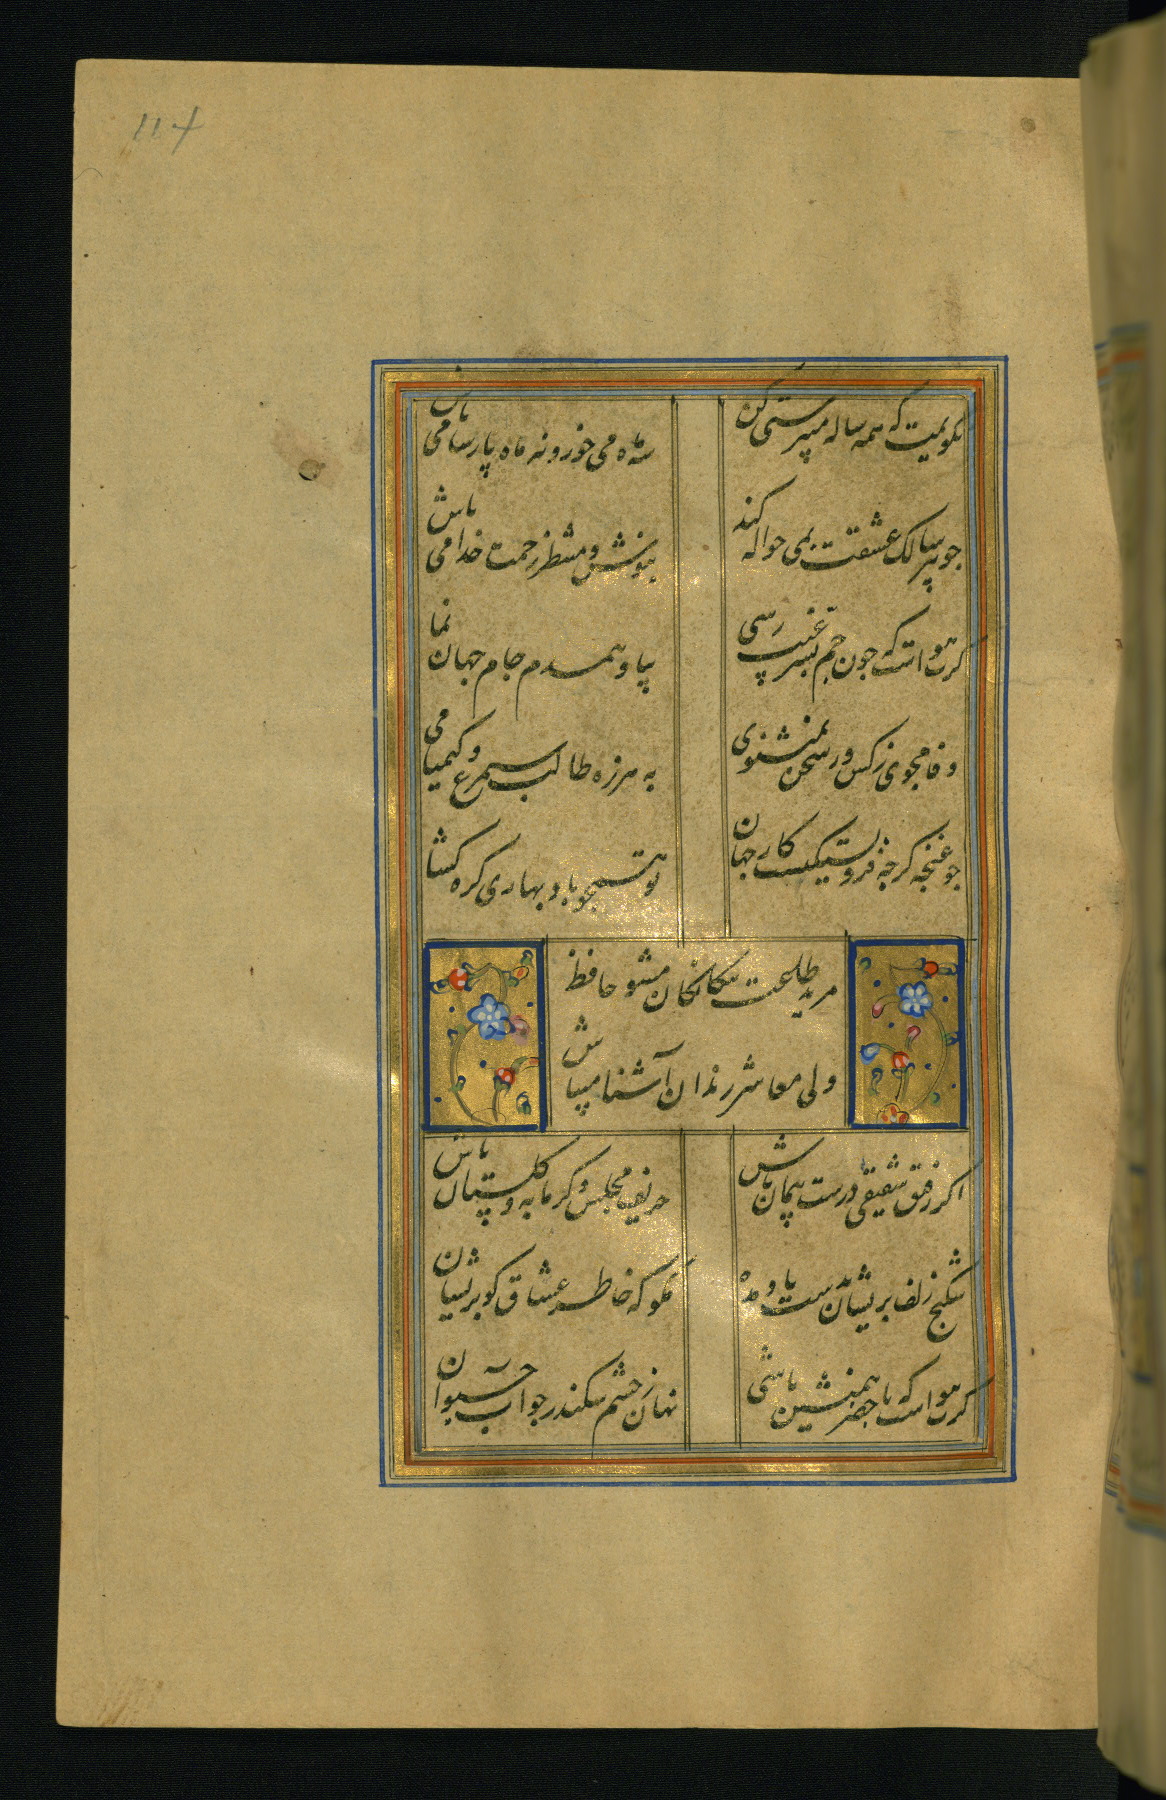 117
نگویمت که همه ساله میپرستی کن
سه ماه می خور و نه ماه پارسا می باش
چو پیر سالک عشقت بمی حواله کند
بنوش و منتظر رحمت خدا می باش
گرت هواست که چون جم بسر غیب رسی
بیا و همدم جام جهان نما
وفا مجوی ز کس ور سخن نمیشنوی
به هرزه طالب سیمرغ و کیمیا می
چو غنچه گرچه فروبستگیست کار جهان
تو همچو باد بهاری گره گشا
مرید طاعت بیگانگان مشو حافظ
ولی معاشر رندان آشنا میباش
اگر رفیق شفیقی درست پیمان باش
حریف مجلس و گرمابه و گلستان باش
شکنج زلف پریشان بدست باد مده
مگو که خاطر عشاق گو پریشان
گرت هواست که با خضر همنشین باشی
نهان ز چشم سکندر چو آب حیوان